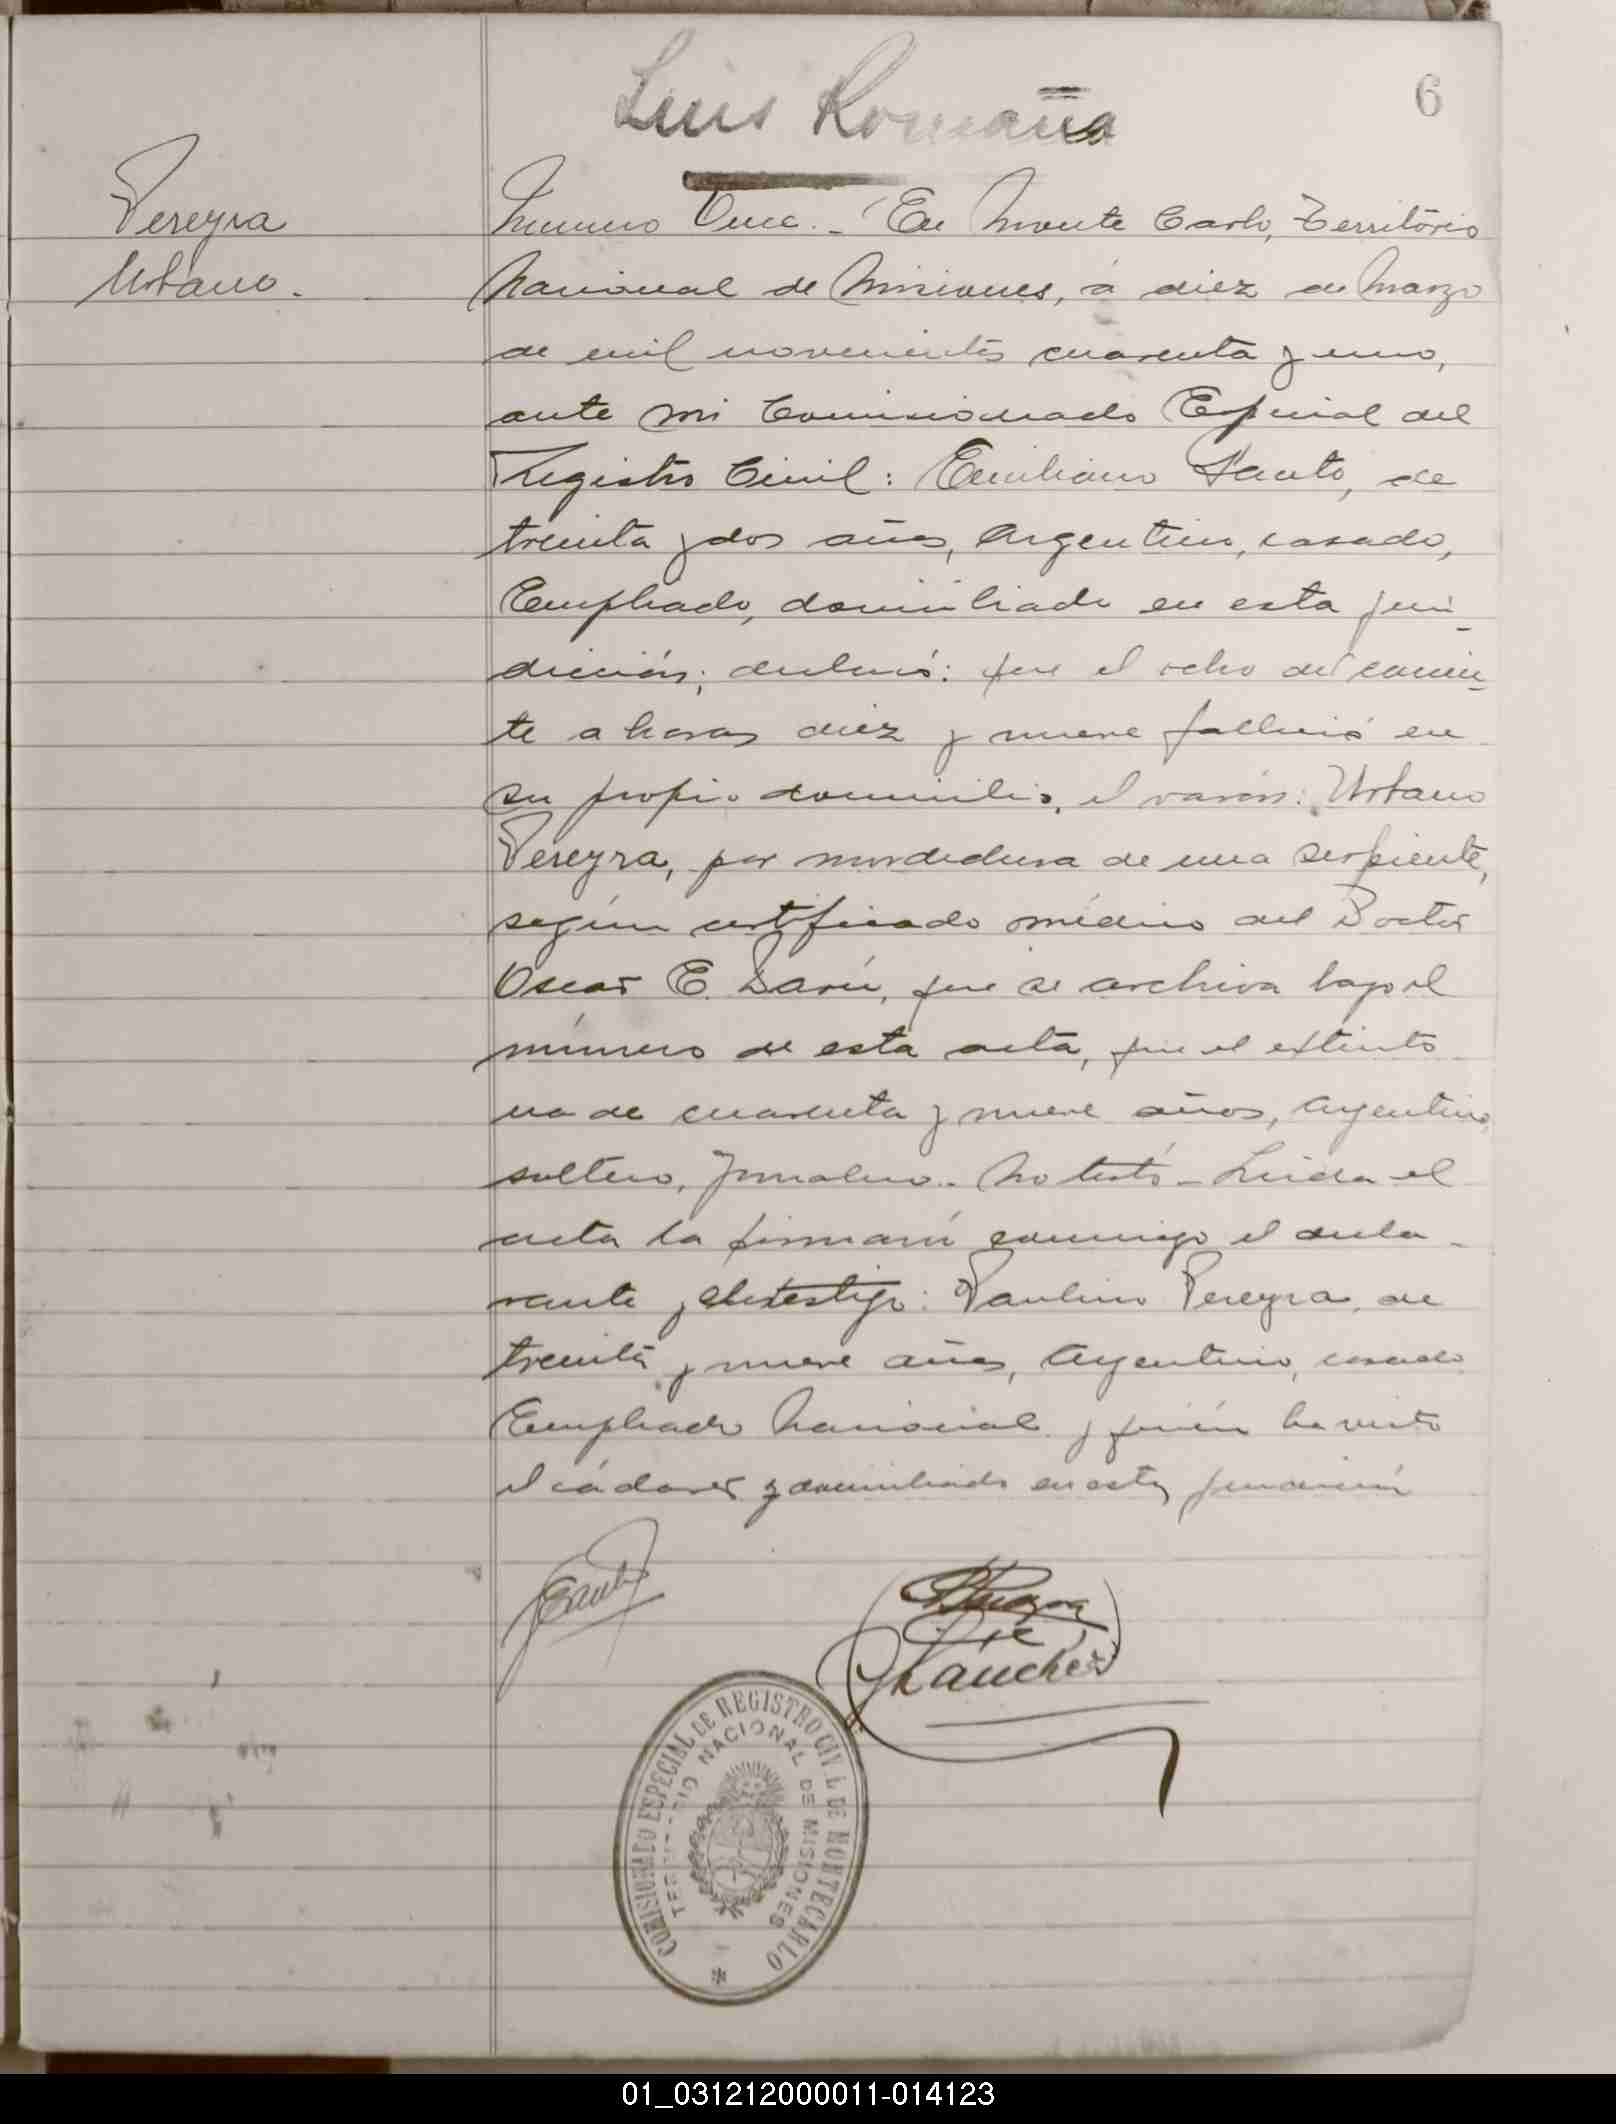 Luis Romaña
6
Pereyra
Urbano.
Numero Once. - En Monte Carlo, Territorio
Nacional de Misiones, á diez de Marzo
de mil novecientos cuarenta y uno,
ante mi Comisionado Especial del
Registro Civil: Emiliano Santo, de
treinta y dos años, Argentino, casado,
Empleado, domiciliado en esta juris
dicción; declaró: que el ocho del corrien-
te a horas diez y nueve falleció en
su propio domicilio, el varón: Urbano
Pereyra, por mordedura de una serpiente,
según certificado médico del Doctor
Oscar E. Darú, que se archiva bajo el
número de esta acta, que el extinto
era de cuarenta y nueve años, Argentino,
soltero, Jornalero.- No testó - Leida el
acta la firmarán conmigo el decla-
rante y el testigo: Paulino Pereyra, de
treinta y nueve años, Argentino, casado
Empleado Nacional y quién ha visto
el cádaver y domiciliado en esta jurisdicción
ESanto
PPereyra
Sanchez
COMISIONADO ESPECIAL DE REGISTRO CIVIL DE MONTECARLO
TERRITORIO NACIONAL DE MISIONES
01_031212000011-014123